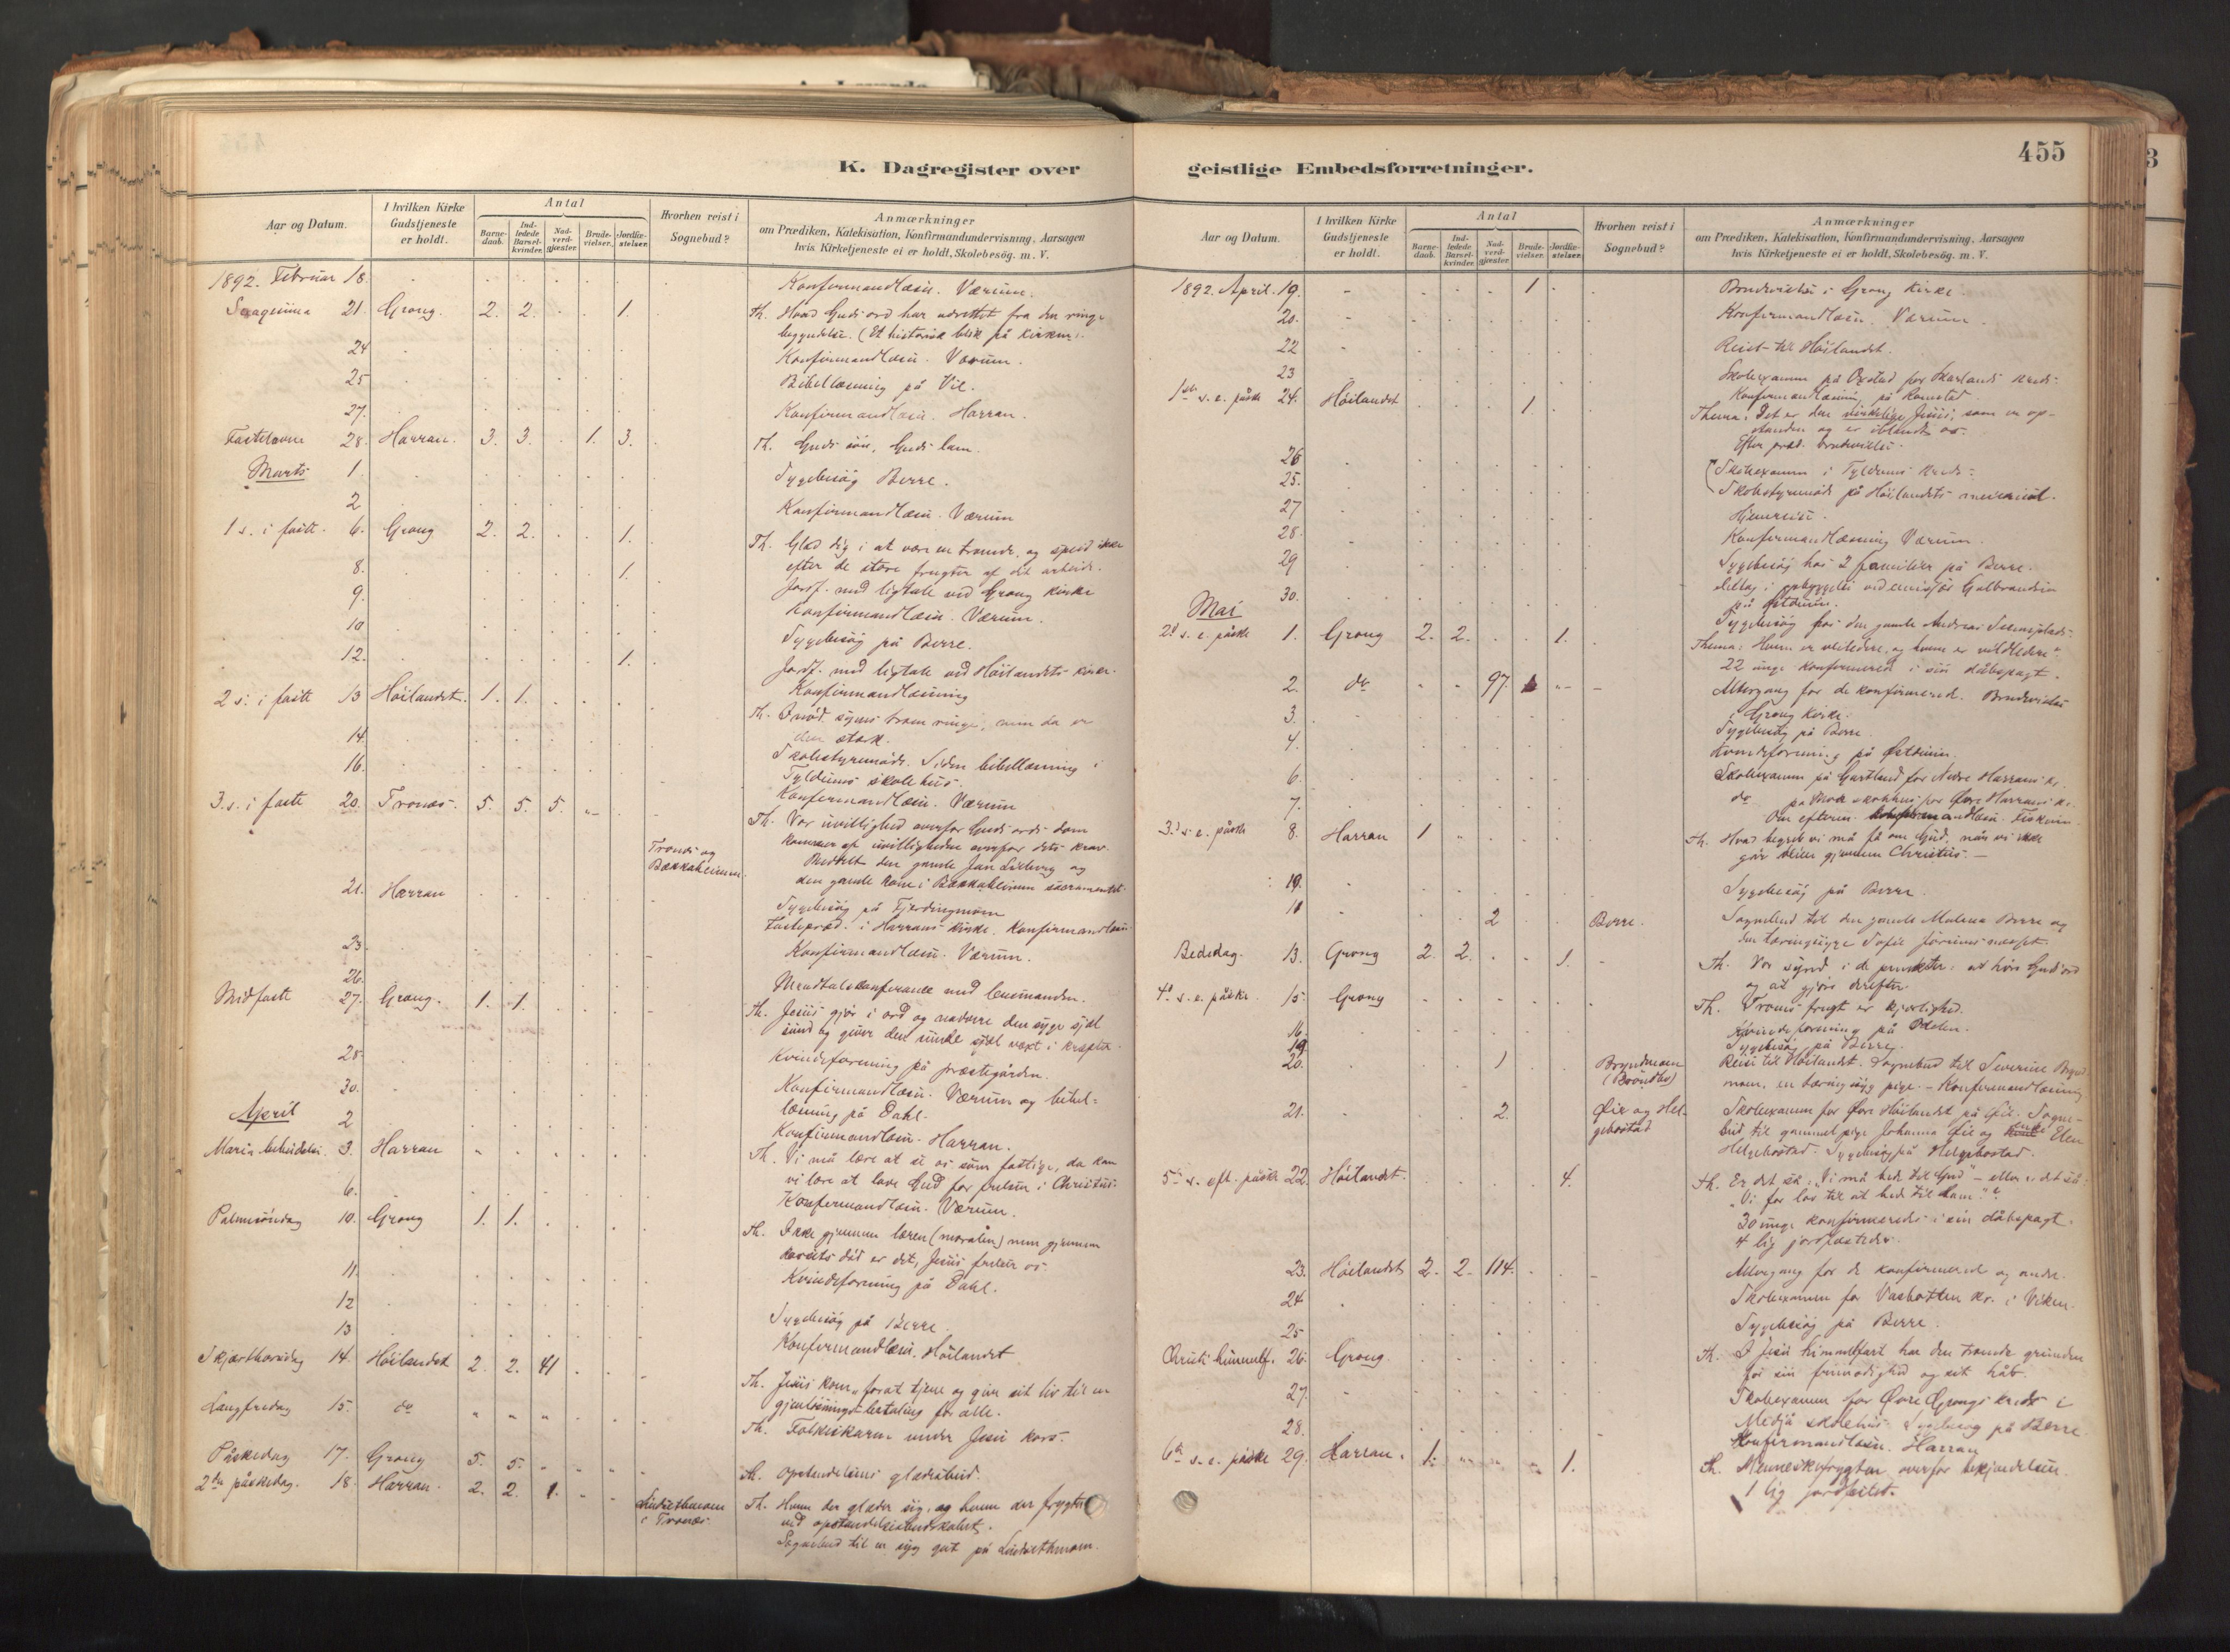 455
K. Dagregister over geistlige Embedsforretninger.
Aar og Datum.
I hvilken Kirke Gudstjeneste er holdt.
Antal
Barne-daab.
Ind-ledede Barsel-kvinder.
Nad-verd-gjæster.
Brude-vielser.
Jordfæ-stelser.
Hvorhen reist i Sognebud?
Anmærkninger
om Prædiken, Katekisation, Konfirmandundervisning, Aarsagen
hvis Kirketjeneste ei er holdt, Skolebesög. m. V.
1892. Februar 18. Konfirmandlæsn. Værum.
21. Grong. 2. 2. 1. Th. Hvad Guds ord har udrettet fra den ringe
begyndelse. (Et historisk blik på kirken).
24 Konfirmandlæsn. Værum.
25 Bibellæsning på Vie.
27. Konfirmandlæsn. Harran.
Fastelavn 28. Harran. 3. 3. 1. 3. Th. Guds sön, Guds lam.
Marts 1. Sygebesög Berre.
2 Konfirmandlæsn. Værum
1 s. i faste. 6. Grong 2. 2. 1. Th. Glæd dig i at være en troende, og speid ikke
efter de store frugter af dit arbeide.
8. 1. Jordf. med ligtale ved Grong kirke
9. Konfirmandlæsn. Værum.
10 Sygebesög på Berre.
12. 1. Jordf. med ligtale ved Höilandets kirke.
Konfirmandlæsning
2 s. i faste 13 Höilandet. 1. 1. Th. Troen synes ringe, men da er
den stærk.
14. Skolestyremöde. Siden bibellæsning i
Tyldums skolehus.
16. Konfirmandlæsn. Værum
3. s. i faste 20. Tronæs. 5. 5. 5. Th. Vor uvillighed overfor Guds ords dom
kommer af uvilligheden overfor dets krav.
Tronæs og Bækkaheimen. den gamle Jon Lilleberg og
den gamle kone i Bækkaheimen sacramentet.
21. Harran Sygebesög på Fjerdingmoen
Fastepræd. i Harrans kirke. Konfirmandlæsn.
23. Konfirmandlæsn. Værum.
26. med lensmanden.
Midfaste 27. Grong. 1. 1. Th. Jesus gjör i ord og nadvere den syge sjæl
sund og giver den sunde sjæl vext i kræfter.
28. Kvindeforening på præstegården.
30. Konfirmandlæsn. Værum og bibel-
læsning på Dahl.
April 2 Konfirmandlæsn. Harran.
Mariæ bebudelse. 3. Harran Th. Vi må lære at se os som fattige, da kan
vi lære at love Gud for frelsen i Christus.
6. Konfirmandlæsn. Værum.
Palmesöndag 10. Grong 1. 1. Th. Ikke gjennem læren (moralen) men gjennem
korsets död er det, Jesus frelser os.
11. Kvindeforening på Dahl.
12 Sygebesög på Berre.
13 Konfirmandlæsn. Höilandet
Skjærthorsdag 14. Höilandet 2. 2. 41 Th. Jesus kom "forat tjene og give sit liv til en
gjenlösningsbetaling for alle.
Langfredag 15. do Th. Folkeskaren under Jesu kors.
Påskedag 17. Grong 5. 5. Th. Opstandelsens glædesbud.
2den påskedag. 18. Harran. 2. 2. 1. i Tronæs. Th. Hvem der glæder sig, og hvem der frygter
ved opstandelsesbudskabet.
Sognebud til en syg gut på
1892. April. 19. 1 Brudevielse i Grong kirke
20. Konfirmandlæsn. Værum.
22 Reist til Höilandet.
23 Skolexamen på Oxstad for Skarlands kreds.
Konfirmandlæsning på Ramstad
1ste s. e. påske 24. Höilandet 1. Thema: Det er den virkelige Jesus, som er op-
standen og er iblandt os.
Efter præd. brudevielse.
26 Skolexamen i Tyldums kreds.
25. Skolestyremöde på Höilandets meieriet.
27 Hjemreise.
28. Konfirmandlæsning Værum.
29 Sygebesög hos 2 familier på Berre.
30. Deltog i opbyggelse ved emissær Gulbrandsen
Mai
Sygebesög hos den gamle Andreas
2d s. e. påske 1. Grong 2. 2. 1. Thema: Hvem er veiledere, og hvem er vildledere?
22 unge konfirmered i sin dåbspagt.
2. do 97. Altergang for de konfirmerede. Brudevielse
i Grong kirke.
3. Sygebesög på Berre.
4. Kvindeforening på Östduun.
6. Skolexamen på Gartland for Nedre Harrans kr.
7. do på Moe skolehus for Övre Harrans kr.
Om efterm. Konfirmandlæsn. Fiskum
3d s. e. påske 8. Harran 1 Th. Hvad begreb vi må få om Gud, når vi ikke
går veien gjennem Christus.
19. Sygebesög på Berre.
10 2 Berre. Sognebud til den gamle Malena Berre og
den tæringssyge Sofie
Bededag. 13. Grong 2. 2. 1. Th. Vor synd i de punkter: at höre Guds ord
og at gjöre derefter
4d s. e. påske. 15. Grong Th. Troens frugt er kjærlighed.
16. Kvindeforening på
19. Sygebesög på Berre.
20. 1 Bryndmoen (Bröndbo) Reise til Höilandet. Sognebud til Severine
moen, en tæringssyg pige. – Konfirmandlæsning
21. 2. Öie og Hel-gebostad Skolexamen for Övre Höilandet på Öie. Sogne-
bud til gammel pige Johanna Öie og enke Elen
Helgebostad. Sygebesög på Helgebostad.
5te s. eft. påske 22. Höilandet. 4. Th. Er det så: "Vi må bede til Gud" – eller er det så:
"Vi får lov til at bede til ham."?
30 unge konfirmerede i sin dåbspagt.
4 lig jordfæstede.
23. Höilandet 2. 2. 114. Altergang for de konfirmerede og andre.
24 Skolexamen for Vasbotten kr. i Viken.
25 Sygebesög på Berre.
Christi himmelf. 26. Grong Th. I Jesu himmelfart har den troende grunden
for sin frimodighed og sit håb.
27. Skolexamen for Övre Grongs kreds i
Medjå skolehus. Sygebesög på Berre.
28. Konfirmandlæsn. Harran
6te s. e. påske 29. Harran. 1. 1. Th. Menneskefrygten overfor bekjendelsen.
1 lig jordfæstet.